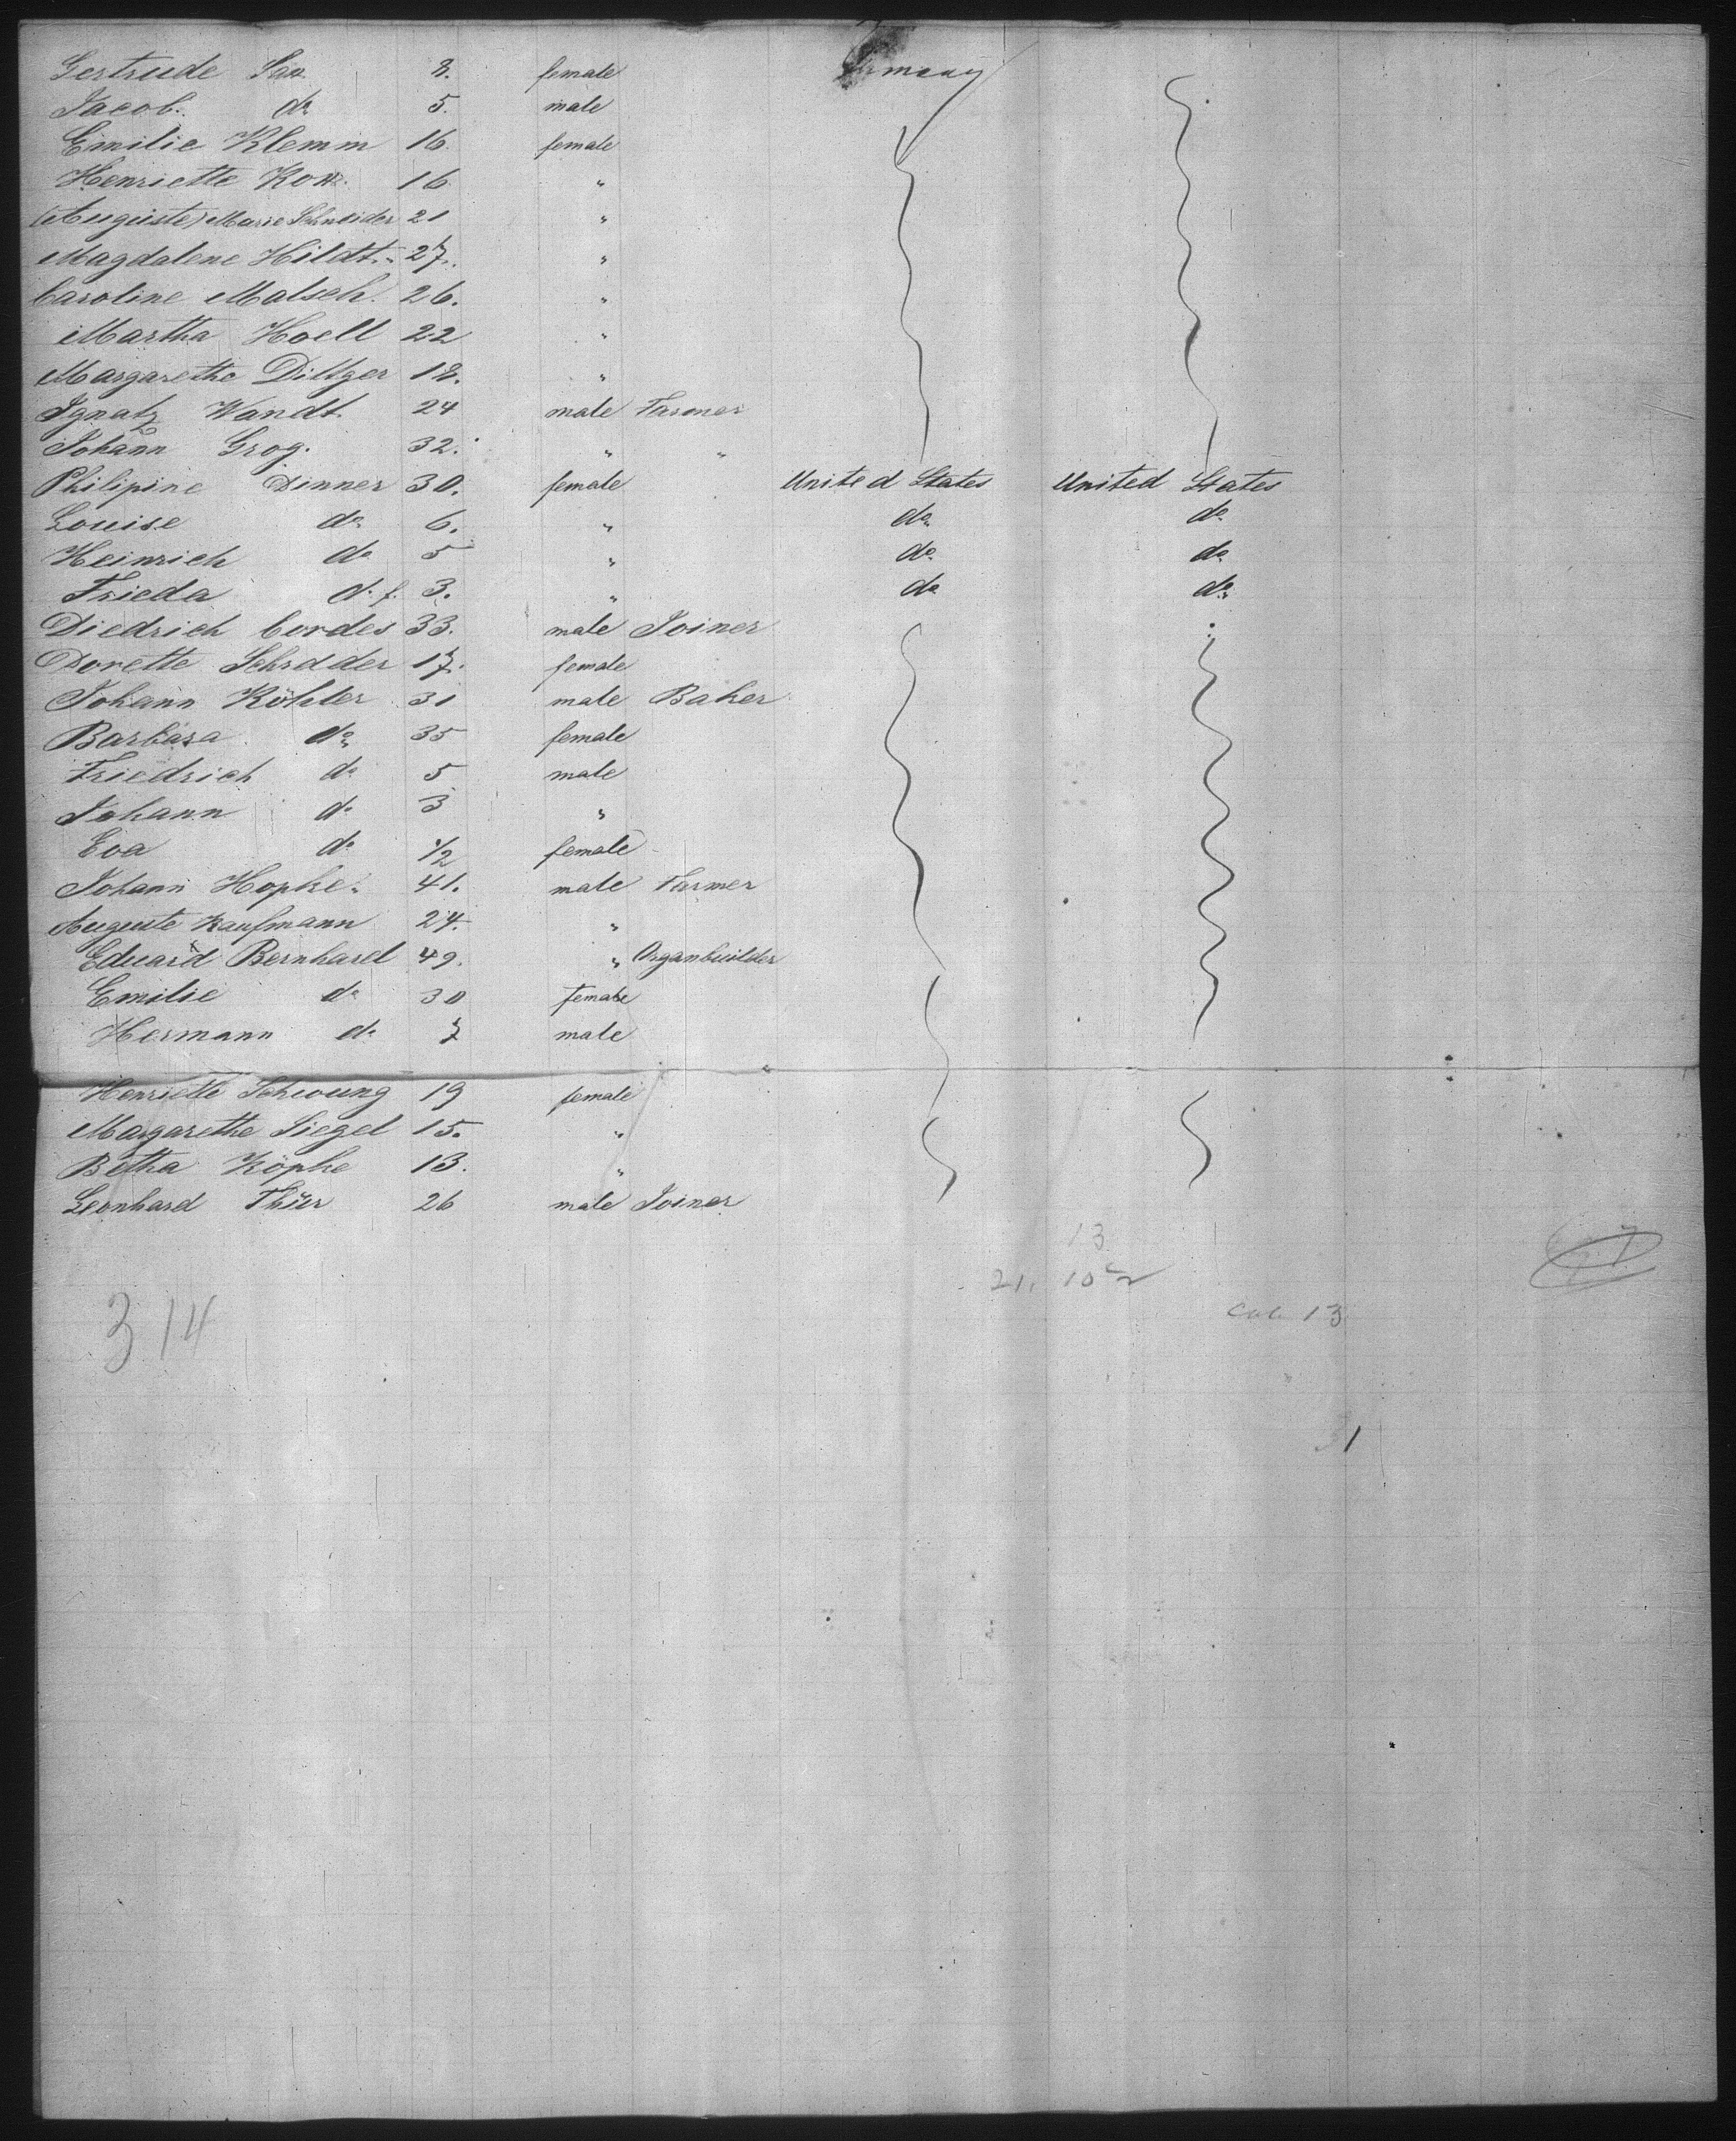 Gertrude Sax 8. female Germany
Jacob. do 5. male
Emilie Klemm 16. female
Henriette 16 "
(Auguste) Marie Schneider 21 "
Magdalene Hildt. 27. "
Caroline Malsch. 26. "
Martha Hoell 22 "
Margarethe Dillger 18. "
Ignatz Wandt. 24 male Farmer
Johann Grog. 32. " "
Philipine Dinner 30. female United States United States
Louise do 6. " do do
Heinrich do 5 " do do
Frieda do f. 3. " do do
Diedrich Cordes 33. male Joiner
Dorette Schröder 17. female
Johann Köhler 31 male Baker
Barbara do 35 female
Friedrich do 5 male
Johann do 3 "
Eva do 1/2 female
Johann Hopke. 41. male Farmer
Auguste Kaufmann 24. "
Eduard Bernhard 49. " Organbuilder
Emilie do 30 female
Hermann do 7 male
Henriette Schwung 19 female
Margarethe Siegel 15. "
Betha Köpke 13. "
Leonhard Thür 26 male Joiner
13
21. 10
13
314
1